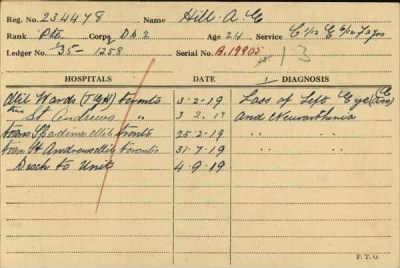 Reg. No. 234478 Name Hill. A. E
Rank Pte. Corps D.A 2 Age 24 Service C 1/12 E 6/12 F
Ledger No. 35 - 1258 Serial No. B.19905 13
HOSPITALS DATE DIAGNOSIS
Mil Wards (TGH) Toronto 3-2-19 Loss of Left Eye
St Andrews " 3 2. 19 and Neurasthenia
Tran Spadina Mil Toronto 25-2-19 " "
Tran St Andrews Mil Toronto 31-7-19 " "
Disch to Unit 4-9-19
P. T. O.